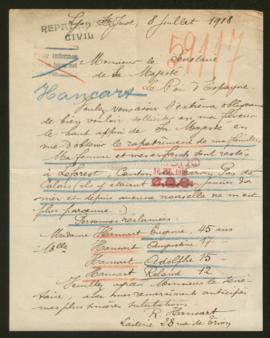 Lyon St Just, 8 juillet 1918
REPA
CIVIL
59117
Monsieur le Secrétaire
de Sa Majesté
Le Roi d'Espagne
Hancart
Veuillez avoir l'extrême obligeance
de bien vouloir solliciter en ma faveur
le haut appui de Sa Majesté en
me d'obtenir le rapatriement de ma famille
Ma femme et mes enfants sont restés
à Leforest, Canton Pas de
Calais (ils y étaient janvier
et depuis aucune nouvelle ne m'est
plus parvenue).
Personnes réclamées:
Madame Hancart Eugénie, 45 ans
Melle Hancart Augustine 17
Hancart Adolphe 15
Hancart Roland 12
Veuillez agréer Monsieur le Secré-
taire, avec mes remerciements anticipés
mes plus sincères salutations.
R Hancart
28 rue de Trion